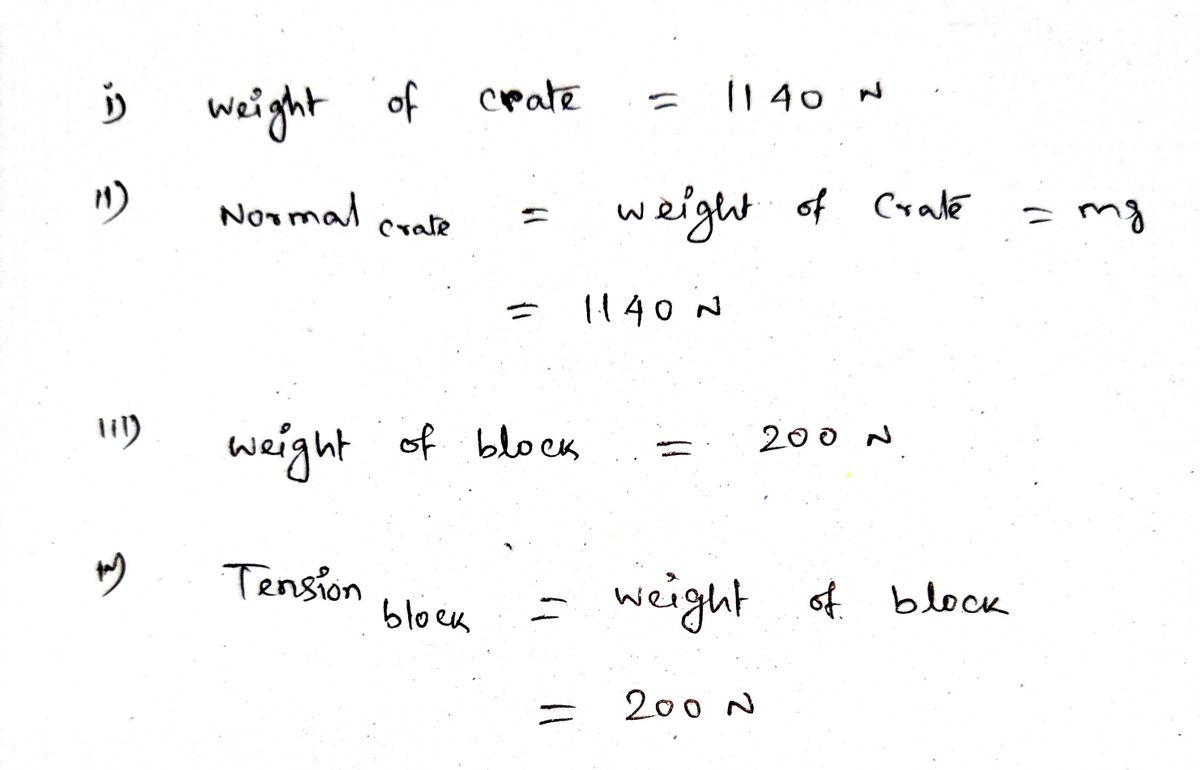 i) weight of crate = 1140 N
ii) Normal crate = weight of Crate = mg
= 1140 N
iii) weight of block = 200 N.
iv) Tension block = weight of block
= 200 N